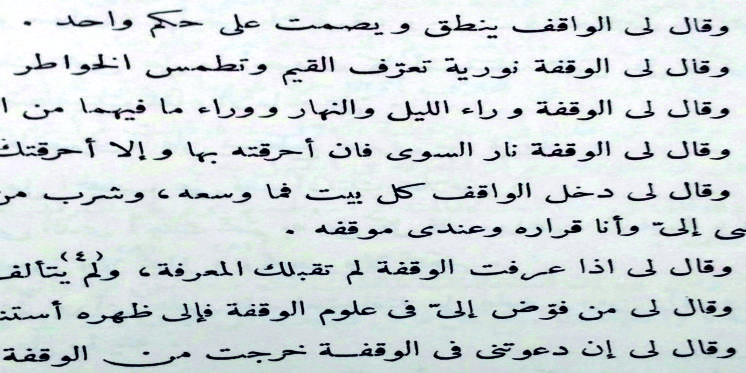 وقال لى الواقف ينطق و يصمت على حكم واحد .
وقال لى الوقفة نورية تعرّف القيم وتطمس الخواطر
وقال لى الوقفة وراء الليل والنهار ووراء ما فيهما من
وقال لى الوقفة نار السوى فان أحرقته بها وإلا أحرقتك
وقال لى دخل الواقف كل بيت فما وسعه، وشرب من
إلىّ وأنا قراره وعندى موقفه .
وقال لى اذا عرفت الوقفة لم تقبلك المعرفة، ولم (٤) يتألف
وقال لى من فوّض إلىّ فى علوم الوقفة فإلى ظهره
وقال لى إن دعوتنى فى الوقفة خرجت من الوقفة